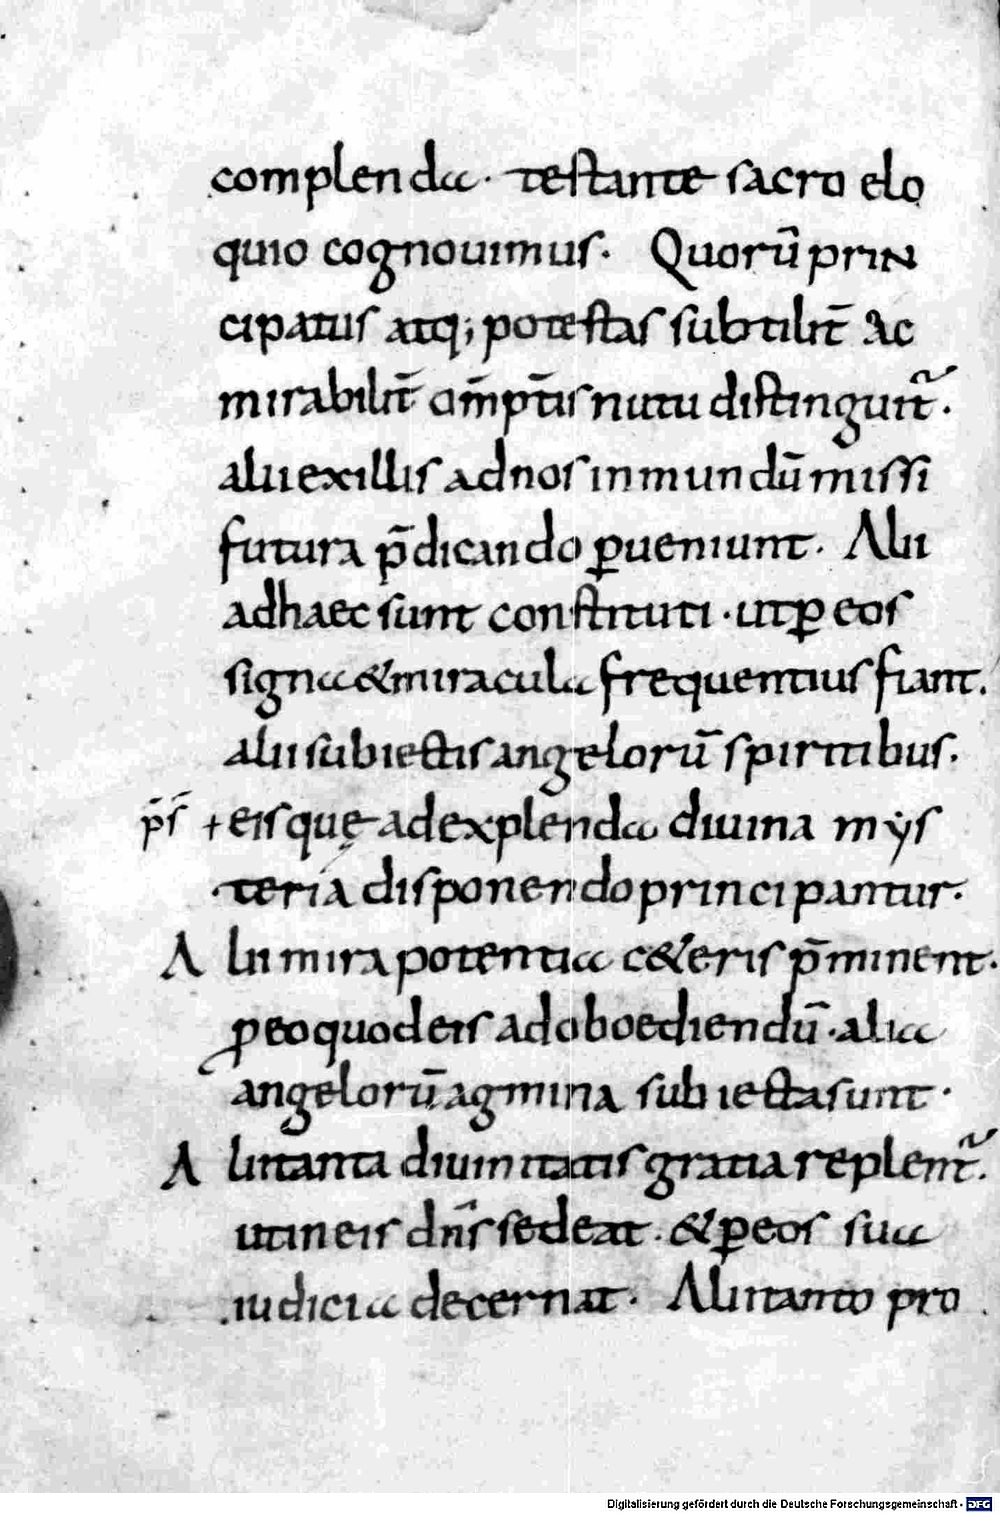 complenda. testante sacro elo
quio cognouimus. Quorū prin
cipatus atq; potestas subtilit̄ ac
mirabilit̄ om̄pt̄is nutu distinguunt̃.
alii ex illis ad nos in mundū missi
futura p̄dicando ꝑueniunt. Alii
ad haec sunt constituti. ut ꝑ eos
signa & miracula frequentius fiant.
alii subiectis angelorū spiritibus.
p̄s̄ + eis quę ad explenda diuina mẏs
teria disponendo principantur.
Alii mira potentia c&eris p̄minent.
ꝑ eo quod eis ad oboediendū. alia
angelorū agmina subiecta sunt.
Alii tanta diuinitatis gratia replent̃.
ut in eis dn̄s sedeat. & ꝑ eos sua
iudicia decernat. Alii tanto pro
Digitalisierung gefördert durch die Deutsche Forschungsgemeinschaft - DFG